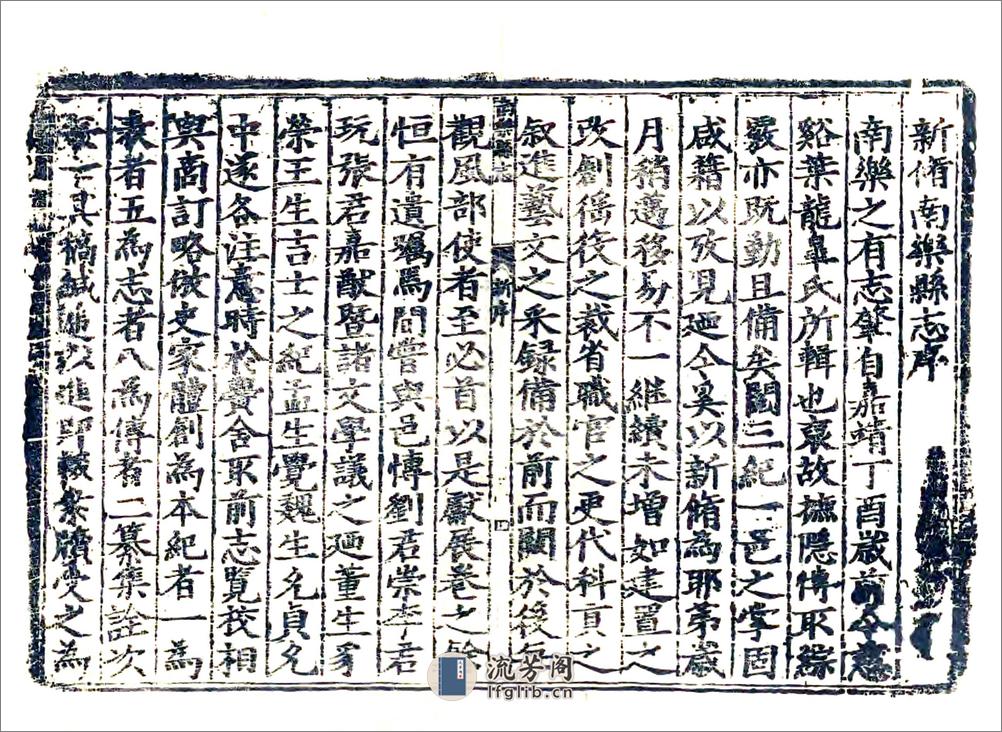 新脩南樂縣志序
南樂之有志肇自嘉靖丁酉歲前令慈
谿葉龍臯氏所輯也裒故摭隱傳取綜
嚴亦既勤且備矣閱三紀一邑之掌固
咸籍以攷見廼今奚以新脩為耶第歲
月稍邁移易不一継續未增如建置之
改創徭役之裁省職官之更代科貢之
敘進藝文之采録備於前而闕於後
南樂縣志
新序
四
觀風部使者至必首以是獻展卷之餘
恒有遺矚焉間嘗與邑愽劉君崇李君
玩張君嘉猷暨諸文學議之廼董生豸
榮王生吉士之紀孟生覺魏生允貞允
中遂各注意時於黌舍取前志覽校相
與商訂略倣史家體創為本紀者一為
表者五為志者八為傳者二纂集詮次
具稿緘進以進即輟案牘受之為
流芳阁
lfglib.cn